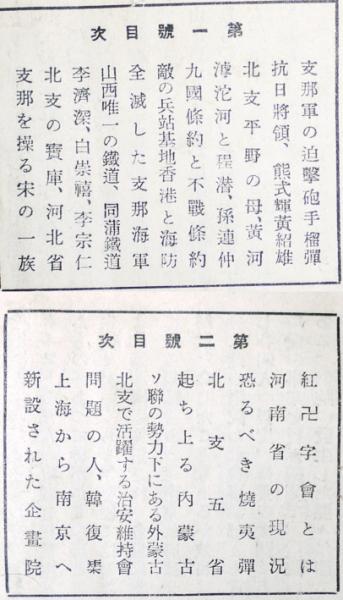 第一號目次
支那軍の迫擊砲手榴彈
抗日將領、熊式輝黃紹雄
北支平野の母、黃河
滹沱河と程潜、孫連仲
九國條約と不戰條約
敵の兵站基地香港と海防
全滅した支那海軍
山西唯一の鐵道、同蒲鐵道
李濟深、白崇禧、李宗仁
北支の寶庫、河北省
支那を操る宋の一族
第二號目次
紅卍字會とは
河南省の現況
恐るべき燒夷彈
北支五省
起ち上る內蒙古
ソ聯の勢力下にある外蒙古
北支で活躍する治安維持會
問題の人、韓復榘
上海から南京へ
新設された企畫院